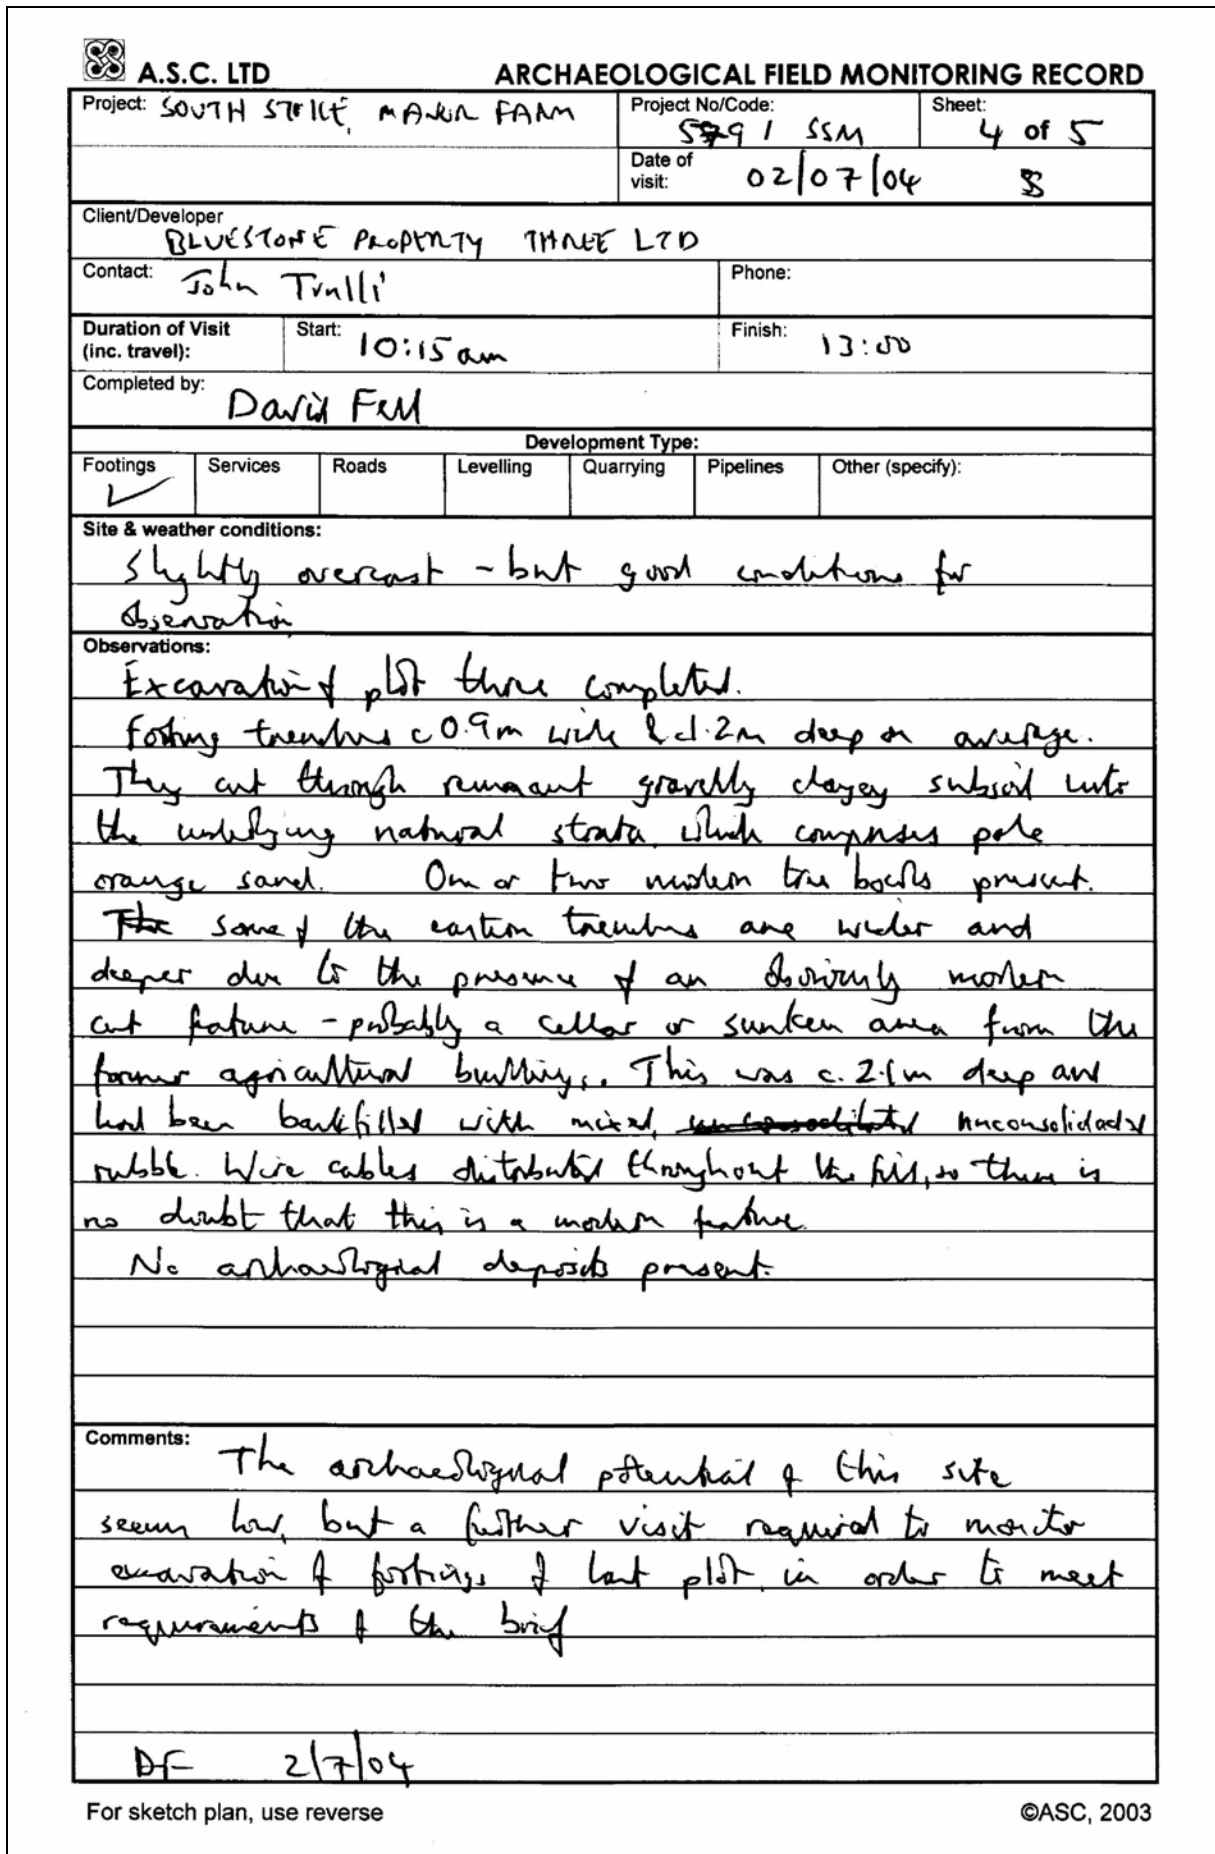 A.S.C. LTD ARCHAEOLOGICAL FIELD MONITORING RECORD
Project: SOUTH STOKE, MANOR FARM Project No/Code: Sheet:
591 SSM 4 of 5
Date of visit: 02/07/04
Client/Developer
BLUESTONE PROPERTY THREE LTD
Contact: John Phone:
Duration of Visit (inc. travel): Start: 10:15am Finish: 13:00
Completed by: David Fell
Development Type:
Footings ✓ Services Roads Levelling Quarrying Pipelines Other (specify):
Site & weather conditions:
Slightly overcast - but good conditions for
observation
Observations:
Excavation of plot three completed.
Footing trenches c 0.9m wide & c1.2m deep on average.
They cut through remnant gravelly clayey subsoil into
the underlying natural strata, which comprises pale
orange sand. One or two modern tree boles present.
The some of the eastern trenches are wider and
deeper due to the presence of an obviously modern
cut feature - probably a cellar or sunken area from the
former agricultural buildings. This was c. 2.1m deep and
had been backfilled with mixed, unconsolidated
rubble. Wire cables distributed throughout the fill, so there is
no doubt that this is a modern feature.
No archaeological deposits present.
Comments:
The archaeological potential of this site
seems low, but a further visit required to monitor
excavation of footings of last plot, in order to meet
requirements of the brief
DF 2/7/04
For sketch plan, use reverse ©ASC, 2003